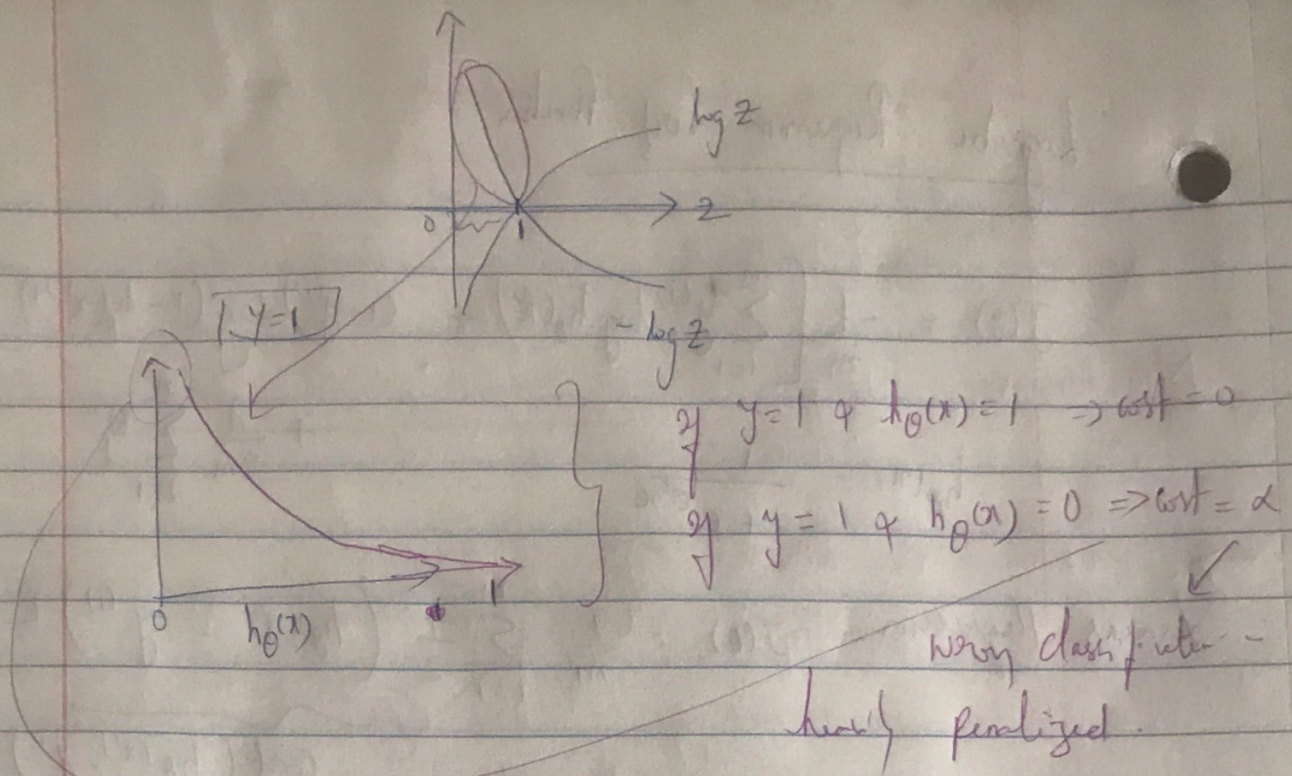 log z
z
0
1
y=1
- log z
If y = 1 & hθ(x) = 1 => cost = 0
If y = 1 & hθ(x) = 0 => cost = α
1
0
hθ(x)
wrong classification -
heavily penalized.